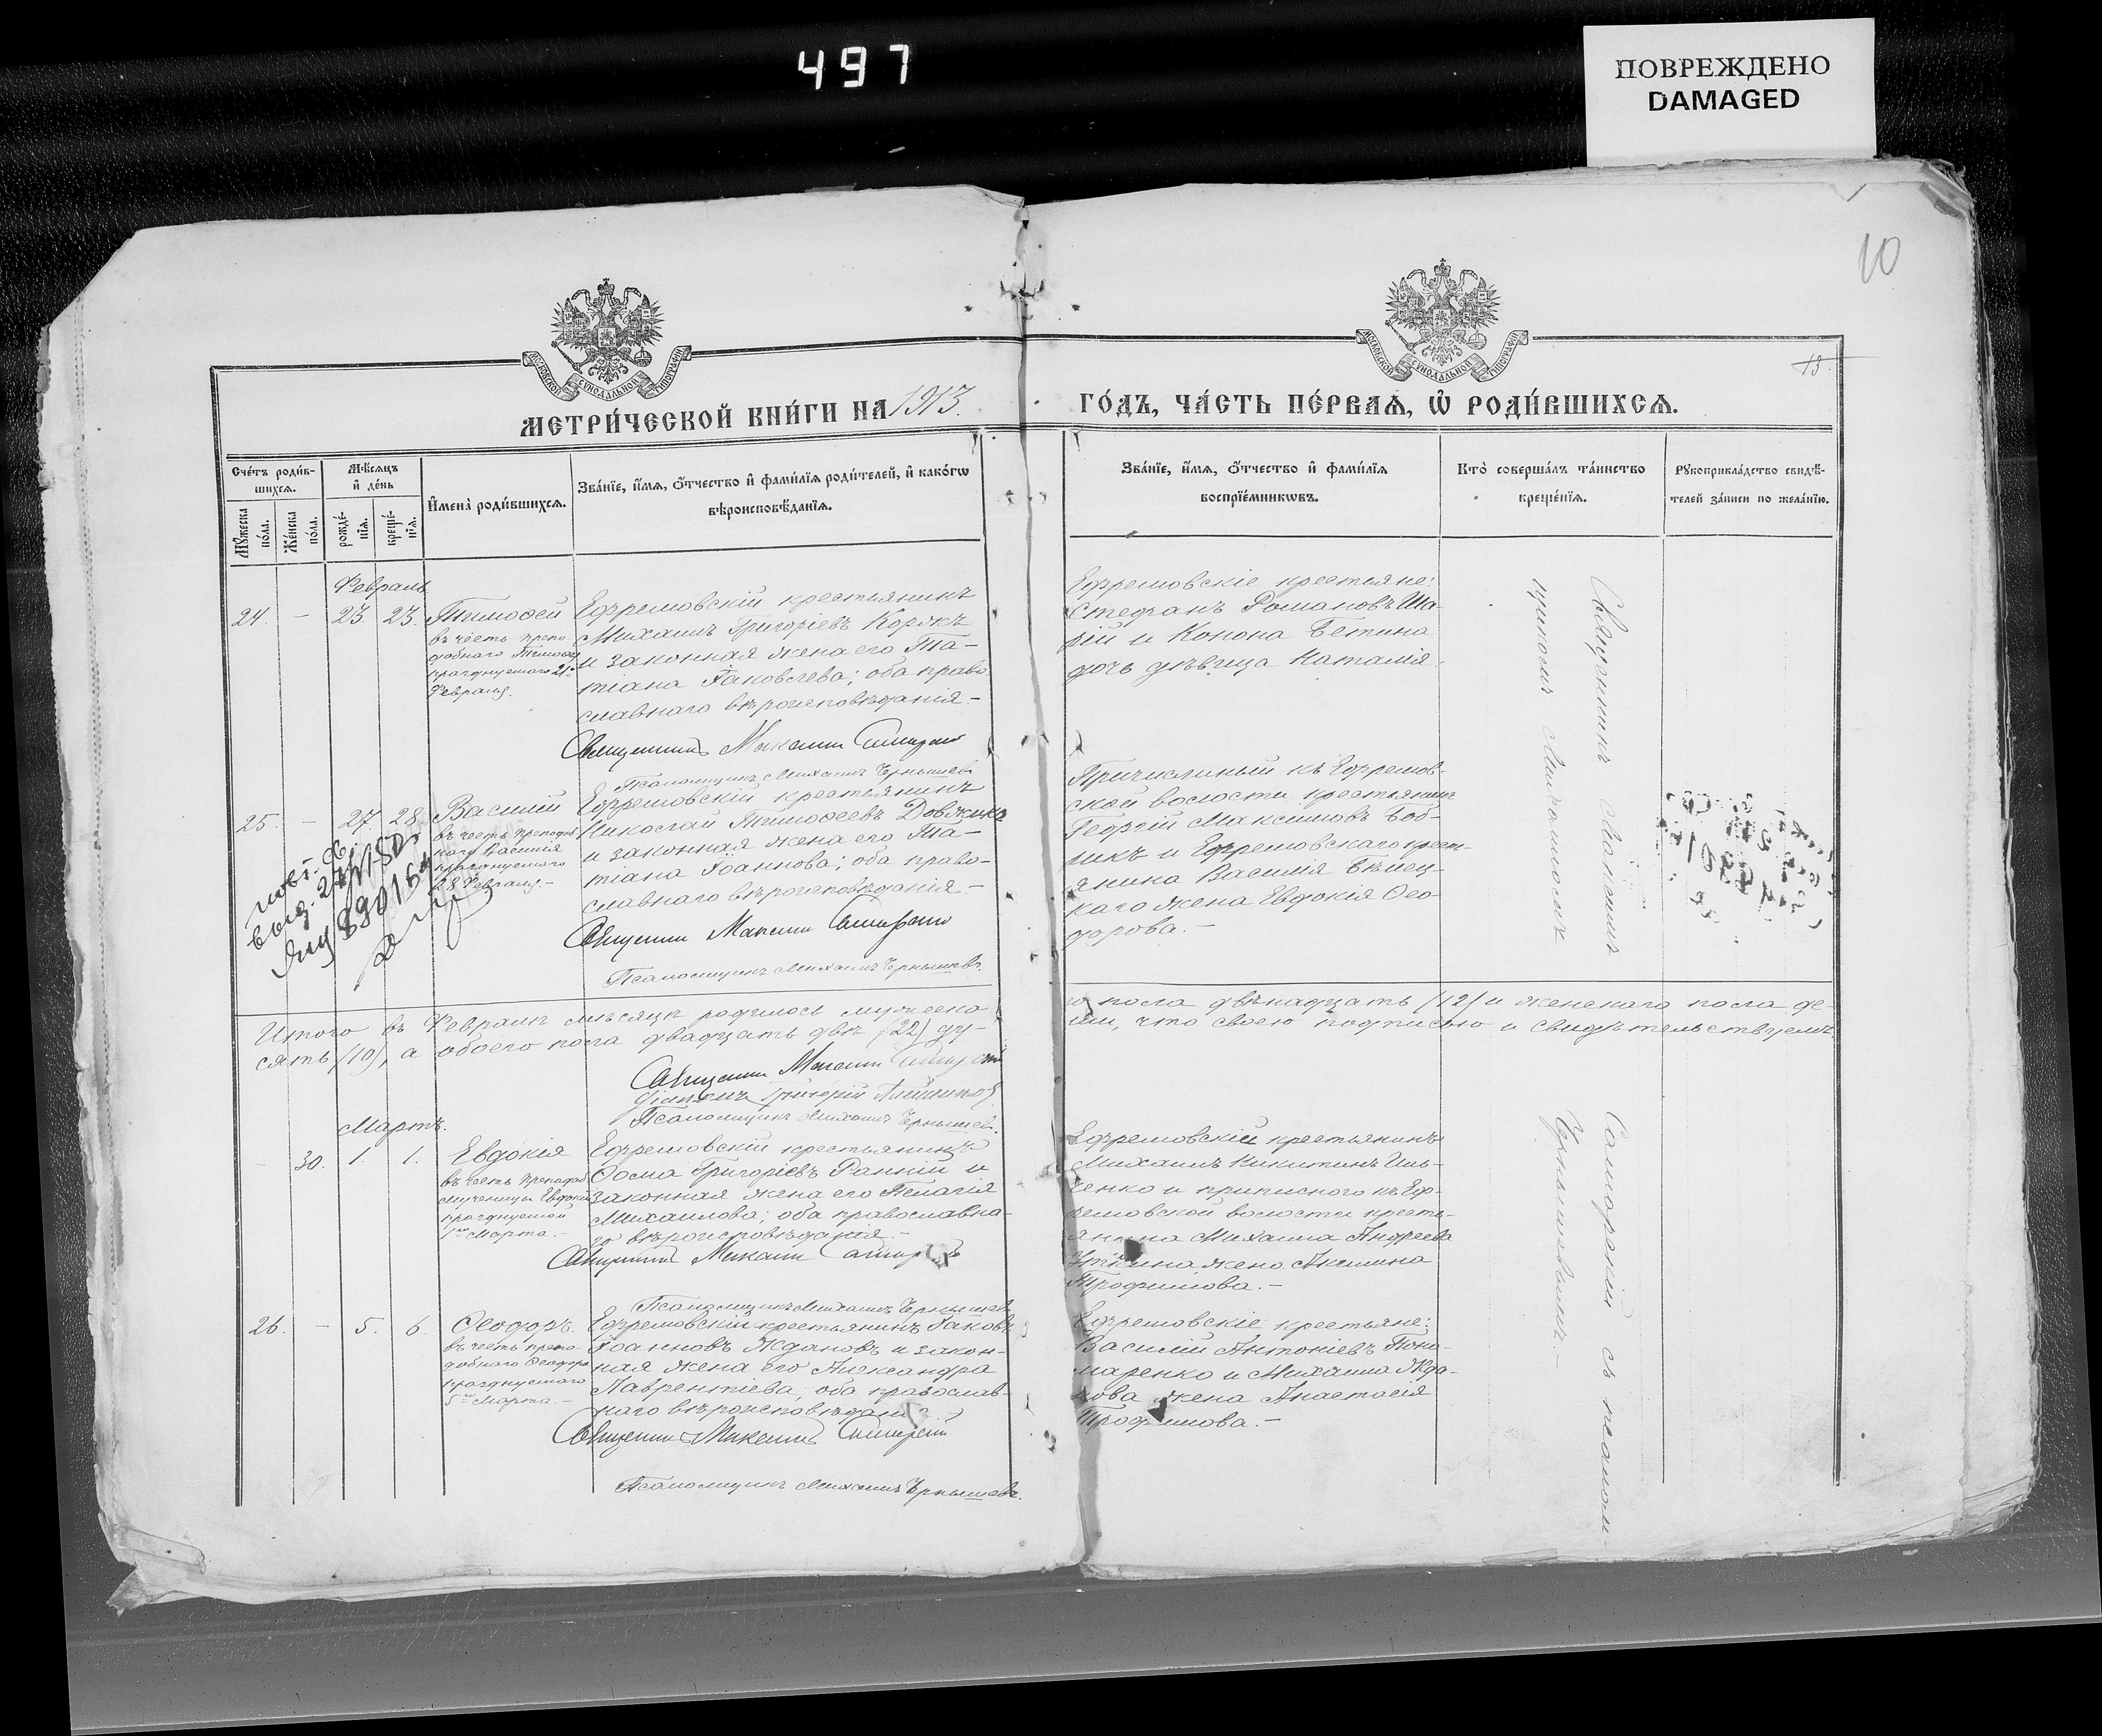 497
ПОВРЕЖДЕНО
DAMAGED
10
13.
МОСКОВСКОЙ СѴНОДАЛЬНОЙ ТИПОГРАФІИ
МОСКОВСКОЙ СѴНОДАЛЬНОЙ ТИПОГРАФІИ
МЕТРИ́ЧЕСКОЙ КНИ́ГИ НА 1913. ГО́ДЪ, ЧА́СТЬ ПЕ́РВАѦ, Ѽ РОДИ́ВШИХСѦ.
Сче́тъ роди́в-
шихсѧ.
Мꙋ́жеска по́ла.
Же́нска по́ла.
Мѣ́сѧцъ
и҆ де́нь
рожде́-
нїѧ.
креще́-
нїѧ.
И҆мена̀ роди́вшихсѧ.
Зва́нїе, и҆́мѧ, ѻ҆́тчество и҆ фами́лїѧ роди́телей, и҆ како́гѡ
вѣ́роисповѣ́данїѧ.
Зва́нїе, и҆́мѧ, ѻ҆́тчество и҆ фами́лїѧ
воспрїе́мникѡвъ.
Кто̀ соверша́лъ та́инство
креще́нїѧ.
Рꙋкоприкла́дство свидѣ́-
телей за́писи по жела́нїю.
Февраль
24. – 23. 23. Тимофей
въ честь препо-
добнаго Тимофея
празднуемаго 21го
Февраля.
Ефремовскій крестьянинъ
Михаилъ Григоріевъ Коржъ
и законная жена его Та-
тіана Іаковлева; оба право-
славнаго вѣроисповѣданія.–
Священникъ Максимъ
Псаломщикъ Михаилъ Чернышевъ
Ефремовскіе крестьяне:
Стефанъ Романовъ Ша-
рій и Конона Бетина
дочь дѣвица Наталія.
25. – 27. 28. Василій
въ честь преподоб-
наго Василія
празднуемаго
28 Февраля.–
Ефремовскій крестьянинъ
Николай Тимофеевъ Довжикъ
и законная жена его Та-
тіана Іоаннова; оба право-
славнаго вѣроисповѣданія.–
Священникъ Максимъ
Псаломщикъ Михаилъ Чернышевъ.
Причисленный къ Ефремов-
ской волости крестьянинъ
Георгій Максимовъ Боб-
никъ и Ефремовскаго крест-
янина Василія
жена Евдокія Ѳео-
дорова.–
Священникъ
Итого въ Февралѣ мѣсяцѣ родилось мужеска-
го пола двѣнадцать (12) и женскаго пола де-
сять (10), а обоего пола двадцать двѣ (22) ду-
ши, что своею подписью и свидѣтельствуемъ.
Священникъ Максимъ
Діаконъ Григорій
Псаломщикъ Михаилъ Чернышевъ.
Мартъ.
– 30. 1. 1. Евдокія
въ честь преподоб.
мученицы Евдокіи
празднуемой
1го Марта.–
Ефремовскій крестьянинъ
Ѳома Григоріевъ Ранній и
законная жена его Пелагія
Михаилова; оба православна-
го вѣроисповѣданія.–
Священникъ Максимъ
Псаломщикъ Михаилъ Чернышевъ
Ефремовскій крестьянинъ
Михаилъ Никитинъ Иль-
ченко и приписного къ Еф-
ремовской волости кресть-
янина Михаила Андреева
жена Акилина
Трофимова.–
26. – 5. 6. Ѳеодоръ.
въ честь препо-
добнаго Ѳеодора
празднуемаго
5го Марта.–
Ефремовскій крестьянинъ Іаковъ
Іоанновъ Ждановъ и закон-
ная жена его Александра
Лаврентіева; оба православ-
наго вѣроисповѣданія.–
Священникъ Максимъ
Псаломщикъ Михаилъ Чернышевъ.
Ефремовскіе крестьяне:
Василій Антоніевъ Поно-
маренко и Михаила Жда-
нова жена Анастасія
Трофимова.–